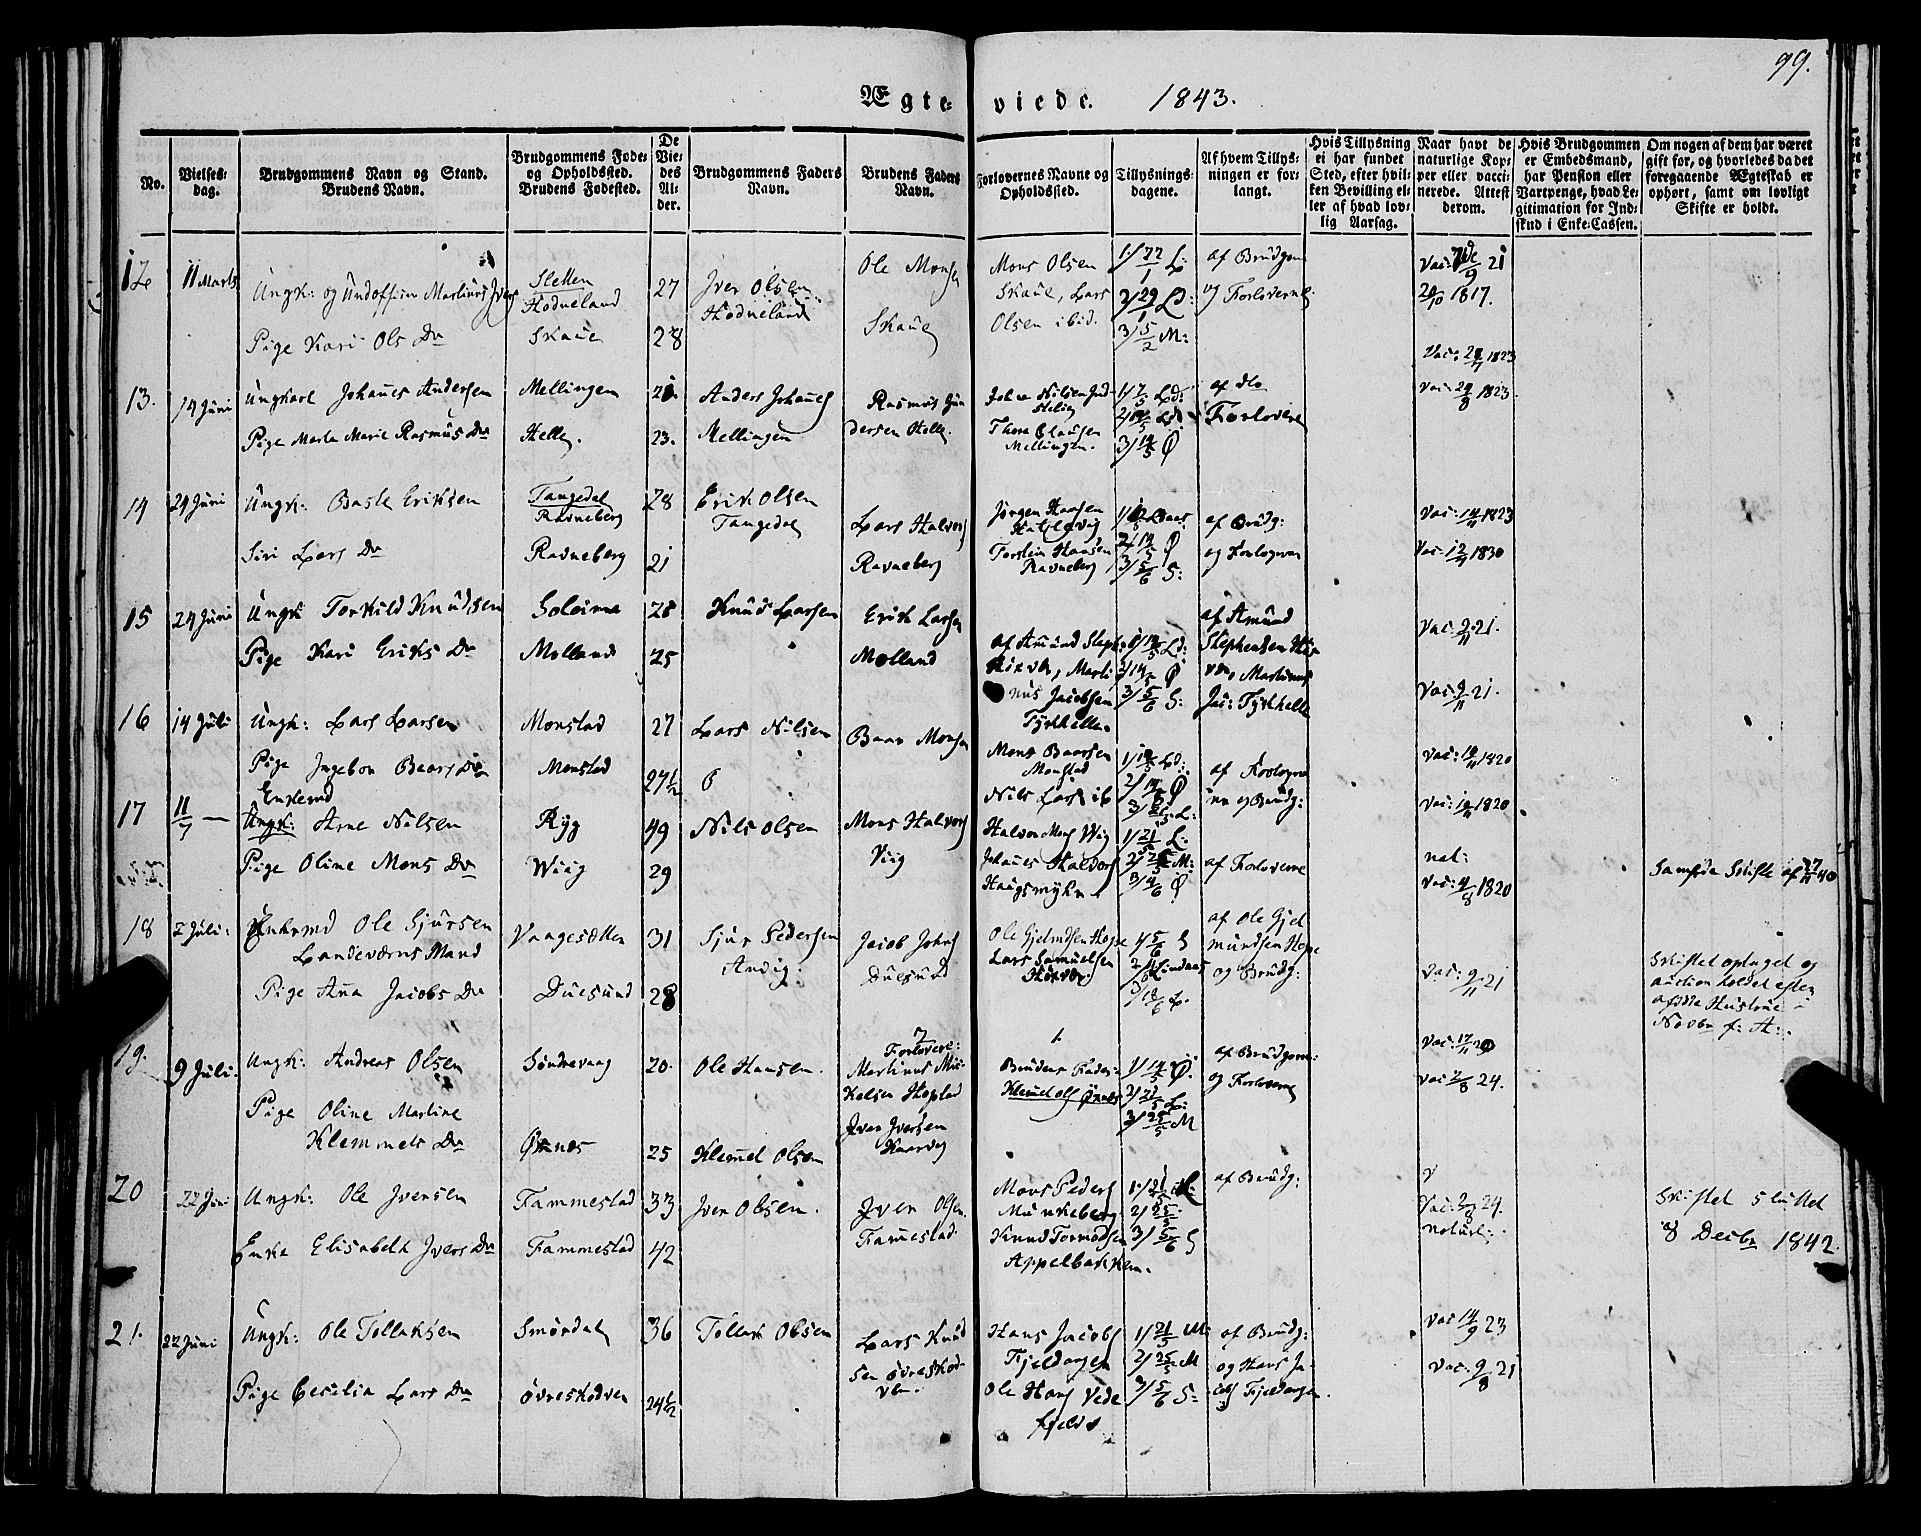 99.
Ægte- viede. 1843.
No.
Vielses-
dag.
Brudgommens Navn og Stand.
Brudens Navn.
Brudgommens Føde-
og Opholdssted.
Brudens Fødested.
De
Vie-
des
Al-
der.
Brudgommens Faders
Navn.
Brudens Faders
Navn.
Forlovernes Navne og
Opholdssted.
Tillysnings-
dagene.
Af hvem Tillys-
ningen er for-
langt.
Hvis Tillysning
ei har fundet
Sted, efter hvil-
ken Bevilling el-
ler af hvad lov-
lig Aarsag.
Naar havt de
naturlige Kop-
per eller vacci-
nerede. Attest
derom.
Hvis Brudgommen
er Embedsmand,
har Pension eller
Vartpenge, hvad Le-
gitimation for Ind-
skud i Enke-Cassen.
Om nogen af dem har været
gift før, og hvorledes da det
foregaaende Ægteskab er
ophørt, samt om lovligt
Skifte er holdt.
12 11 Marts
Ungk: og Undoffisin Martinus Ivers
Sletten
Hodneland
27
Iver Olsen
Hodneland
Ole Monsen
Skaue
Mons Olsen
Skaue, Lars
Olsen ibid.
1/ 22/1 L:
2/ 29/1 Ld:
3/ 5/2 M:
af Brudgom
og Forloverne
20/10 1817.
Pige Kari Ols Dr
Skaue
28
Vac: 28/11 1823
13. 14 Juni
Ungkarl Johannes Andersen
Mellingen
Anders Johannes
Mellingen
Rasmus Gun
dersen Helle.
Mellingen.
af dto
Forlovere
Vac: 29/8 1823.
Pige Marta Marie Rasmus Dr
Helle.
23.
14 24 Juni
Ungk: Baste Eriksen
Tangedal
Ravneberg
28
Erik Olsen
Tangedal
Lars Halvors
Ravneberg
Jørgen Haasen
Torstein Haasen
Ravneberg
2/ 14/5 Ø
3/ 5/6 S:
af Brudg:
og Forloveren
Vac: 14/11 1823
Siri Lars Dr
Ravneberg
21
Vac: 12/9 1830
15 24 Juni
Ungk Torkild Knudsen
Soleima
28
Knud Larsen
Erik Larsen
Molland
af Amund Steph:
Marti
nus Jacobsen
Tyskhelle.
2/ 14/5 Ø
3/ 5/6 S:
af Amund
Stephensen
Martinus
Jac: Tyskhelle
Vac: 9/11 21.
Pige Kari Eriks Dr
Molland
25
Vac: 9/11 21.
16 14 Juli
Ungk: Lars Larsen
Monstad
27
Lars Nilsen
Baar Monsen
Mons Baarsen
Monstad
Nils Lars ib
af Forloveren
og Brudg:
Vac: 10/11 1820
Pige Ingebor Baars Dr
Monstad
27½
Vac: 10/11 1820
17 11/7 —
Enkemd
Ungk: Arne Nilsen
Ryg
49
Nils Olsen
Mons Halvors
Viig
Halvor Mons Wiig
Johannes Haldors
Haugsmyhr
1/ 21/5 L:
2/ 25/5 M:
3/ 4/6 Ø
af Forloverne
nat:
Samfda Skifte af 27/11 40
Pige Oline Mons Dr
Wiig
29
Vac: 4/8 1820
18 2 Juli:
Enkemd Ole Sjursen
Landeværns Mand
Vaagesætter
31
Sjur Pedersen
Andvig:
Jacob Johns
Duesund
Ole Gjelmdsen Hope
Lars Samuelsen
af Ole Gjel
mundsen Hope
og Brudg:
Vac: 9/11 21
Skiftet optaget og
auction holdet efter
afdøe Hustrue
Novbr f: A:.
Pige Ana Jacobs Dr
Duesund
28
19. 9 Juli:
Ungk: Andreas Olsen
Søndrevaag
20.
Ole Hansen.
Forlovere:
Martinus Mik-
kelsen Hopstad
Iver Iversen
Kaarvog
Brudens Fader:
Klemel Ols Ønnes
1/ 14/5 Ø.
2/ 21/5 L:
3/ 25/5 M
af Brudgom:
og Forloverne
Vac: 17/11
Vac 2/8 24.
Pige Oline Martine
Klemmets Dr
Ønnes
25
Klemel Olsen
20 22 Juni
Ungk: Ole Iversen
Fammestad
33
Iver Olsen.
Iver Olsen.
Famestad
Mons Peders
Munkeberg
Knud Tormodsen
Appelbakken.
1/ 21/5 L:
2/ 25/5
3/ 5/6 S
af Brudg:
Vac: 2/8 24.
naturl:
Skiftet sluttet
8 Decbr 1842.
Enke Elisabeth Ivers Dr
Fammestad
42
21. 22 Juni
Ungk: Ole Tollaksen
Smørdal
36
Tollak Olsen
Lars Knud
sen Øvreskod-
ven.
Hans Jacobs
Fjeldanger
Ole Hans Vede
kjelds
1/ 21/5 M
2/ 25/5 M
3/ 5/6 S:
af Brudg:
og Hans Ja-
cobs Fjeldanger.
Vac 14/9 23
Pige Cecilia Lars Dr
Øvreskodven
24½
Vac: 9/8 21